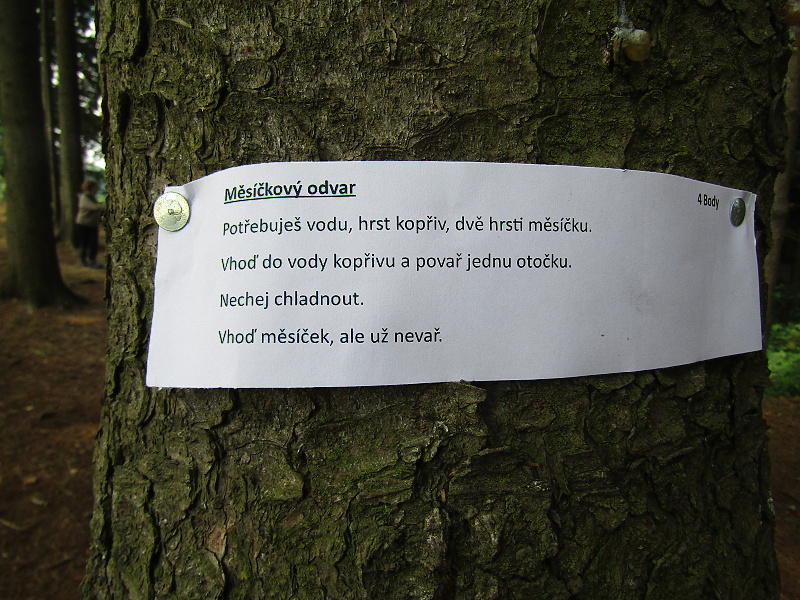 Měsíčkový odvar
4 Body
Potřebuješ vodu, hrst kopřiv, dvě hrsti měsíčku.
Vhoď do vody kopřivu a povař jednu otočku.
Nechej chladnout.
Vhoď měsíček, ale už nevař.